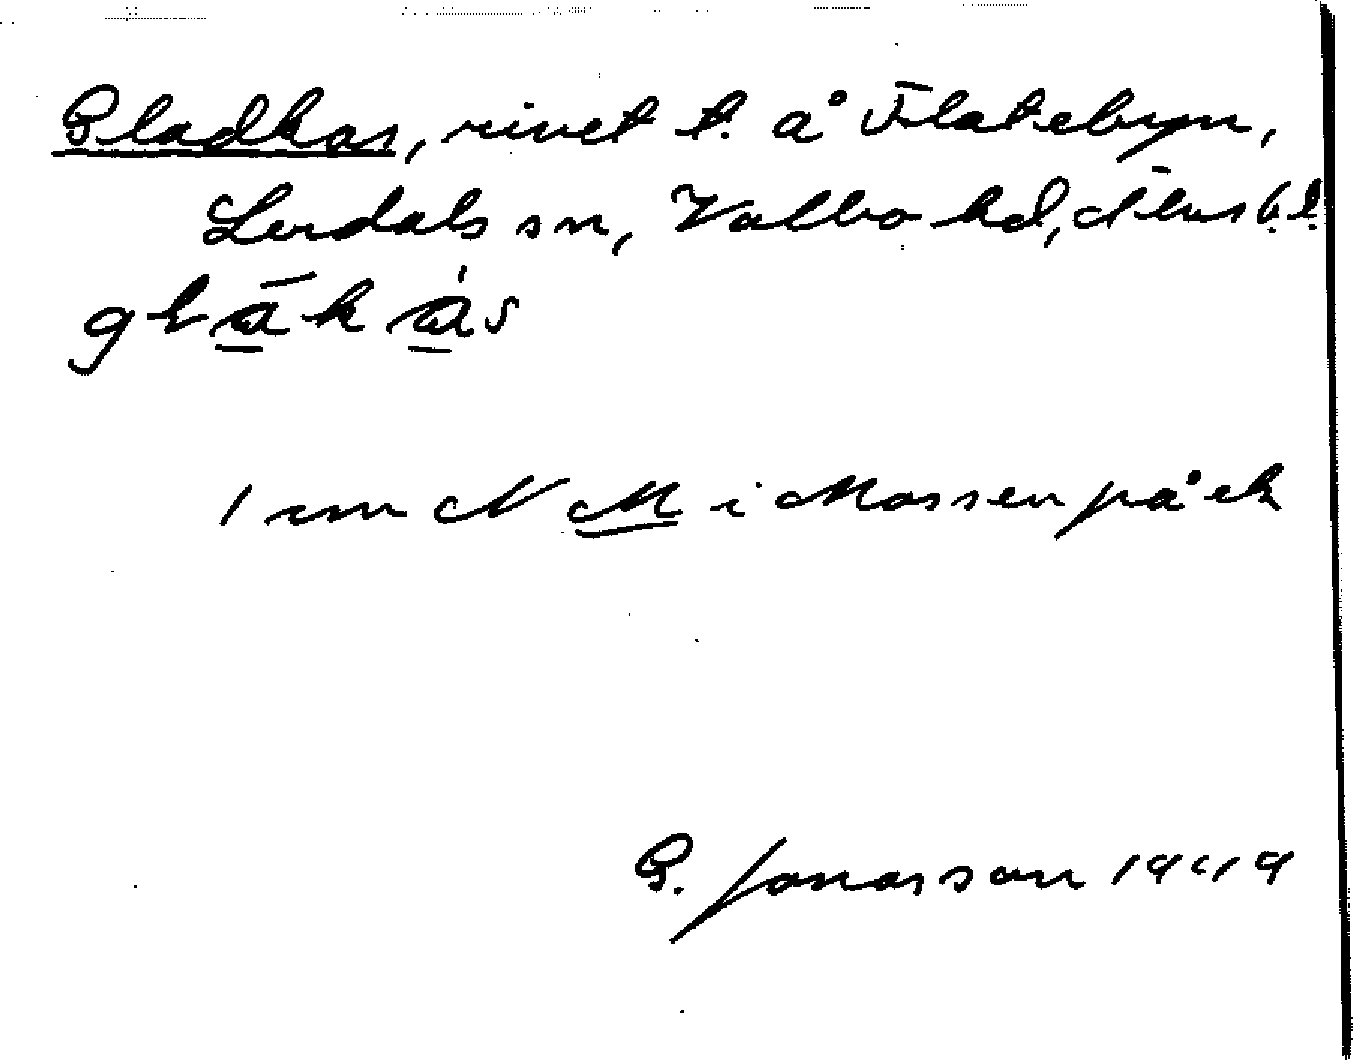 Gladkas, rivet t. å Flatebyn,
Lerdals sn, Valbo hd, Älvsb. l.
glākàs
1 mm N M i Mossen på ek
G. Jonasson 1949